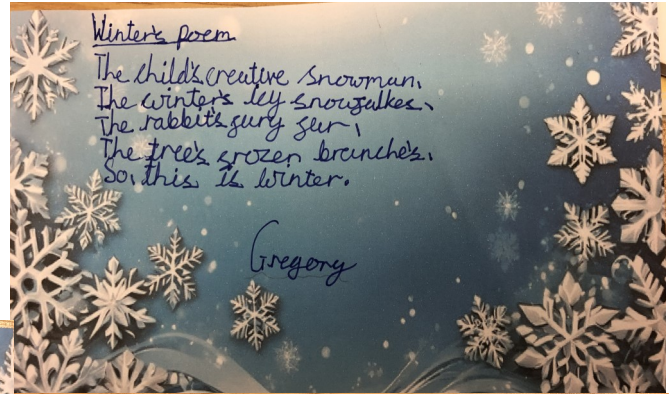 Winter's poem
The child's creative snowman,
The winter's icy snowfalkes,
The rabbit's fury fur,
The tree's frozen branche's,
So, this is winter.
Gregory